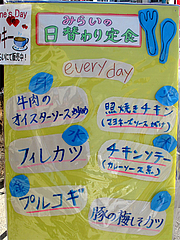 ne's Day
キー
にて販売中!
みらいの
日替わり定食
everyday
牛肉の
オイスターソース炒め
フィレカツ
プルコギ
照焼きチキン
(マヨネーズソースがけ)
水
チキンソテー
(カレーソース系)
豚の梅しそカツ